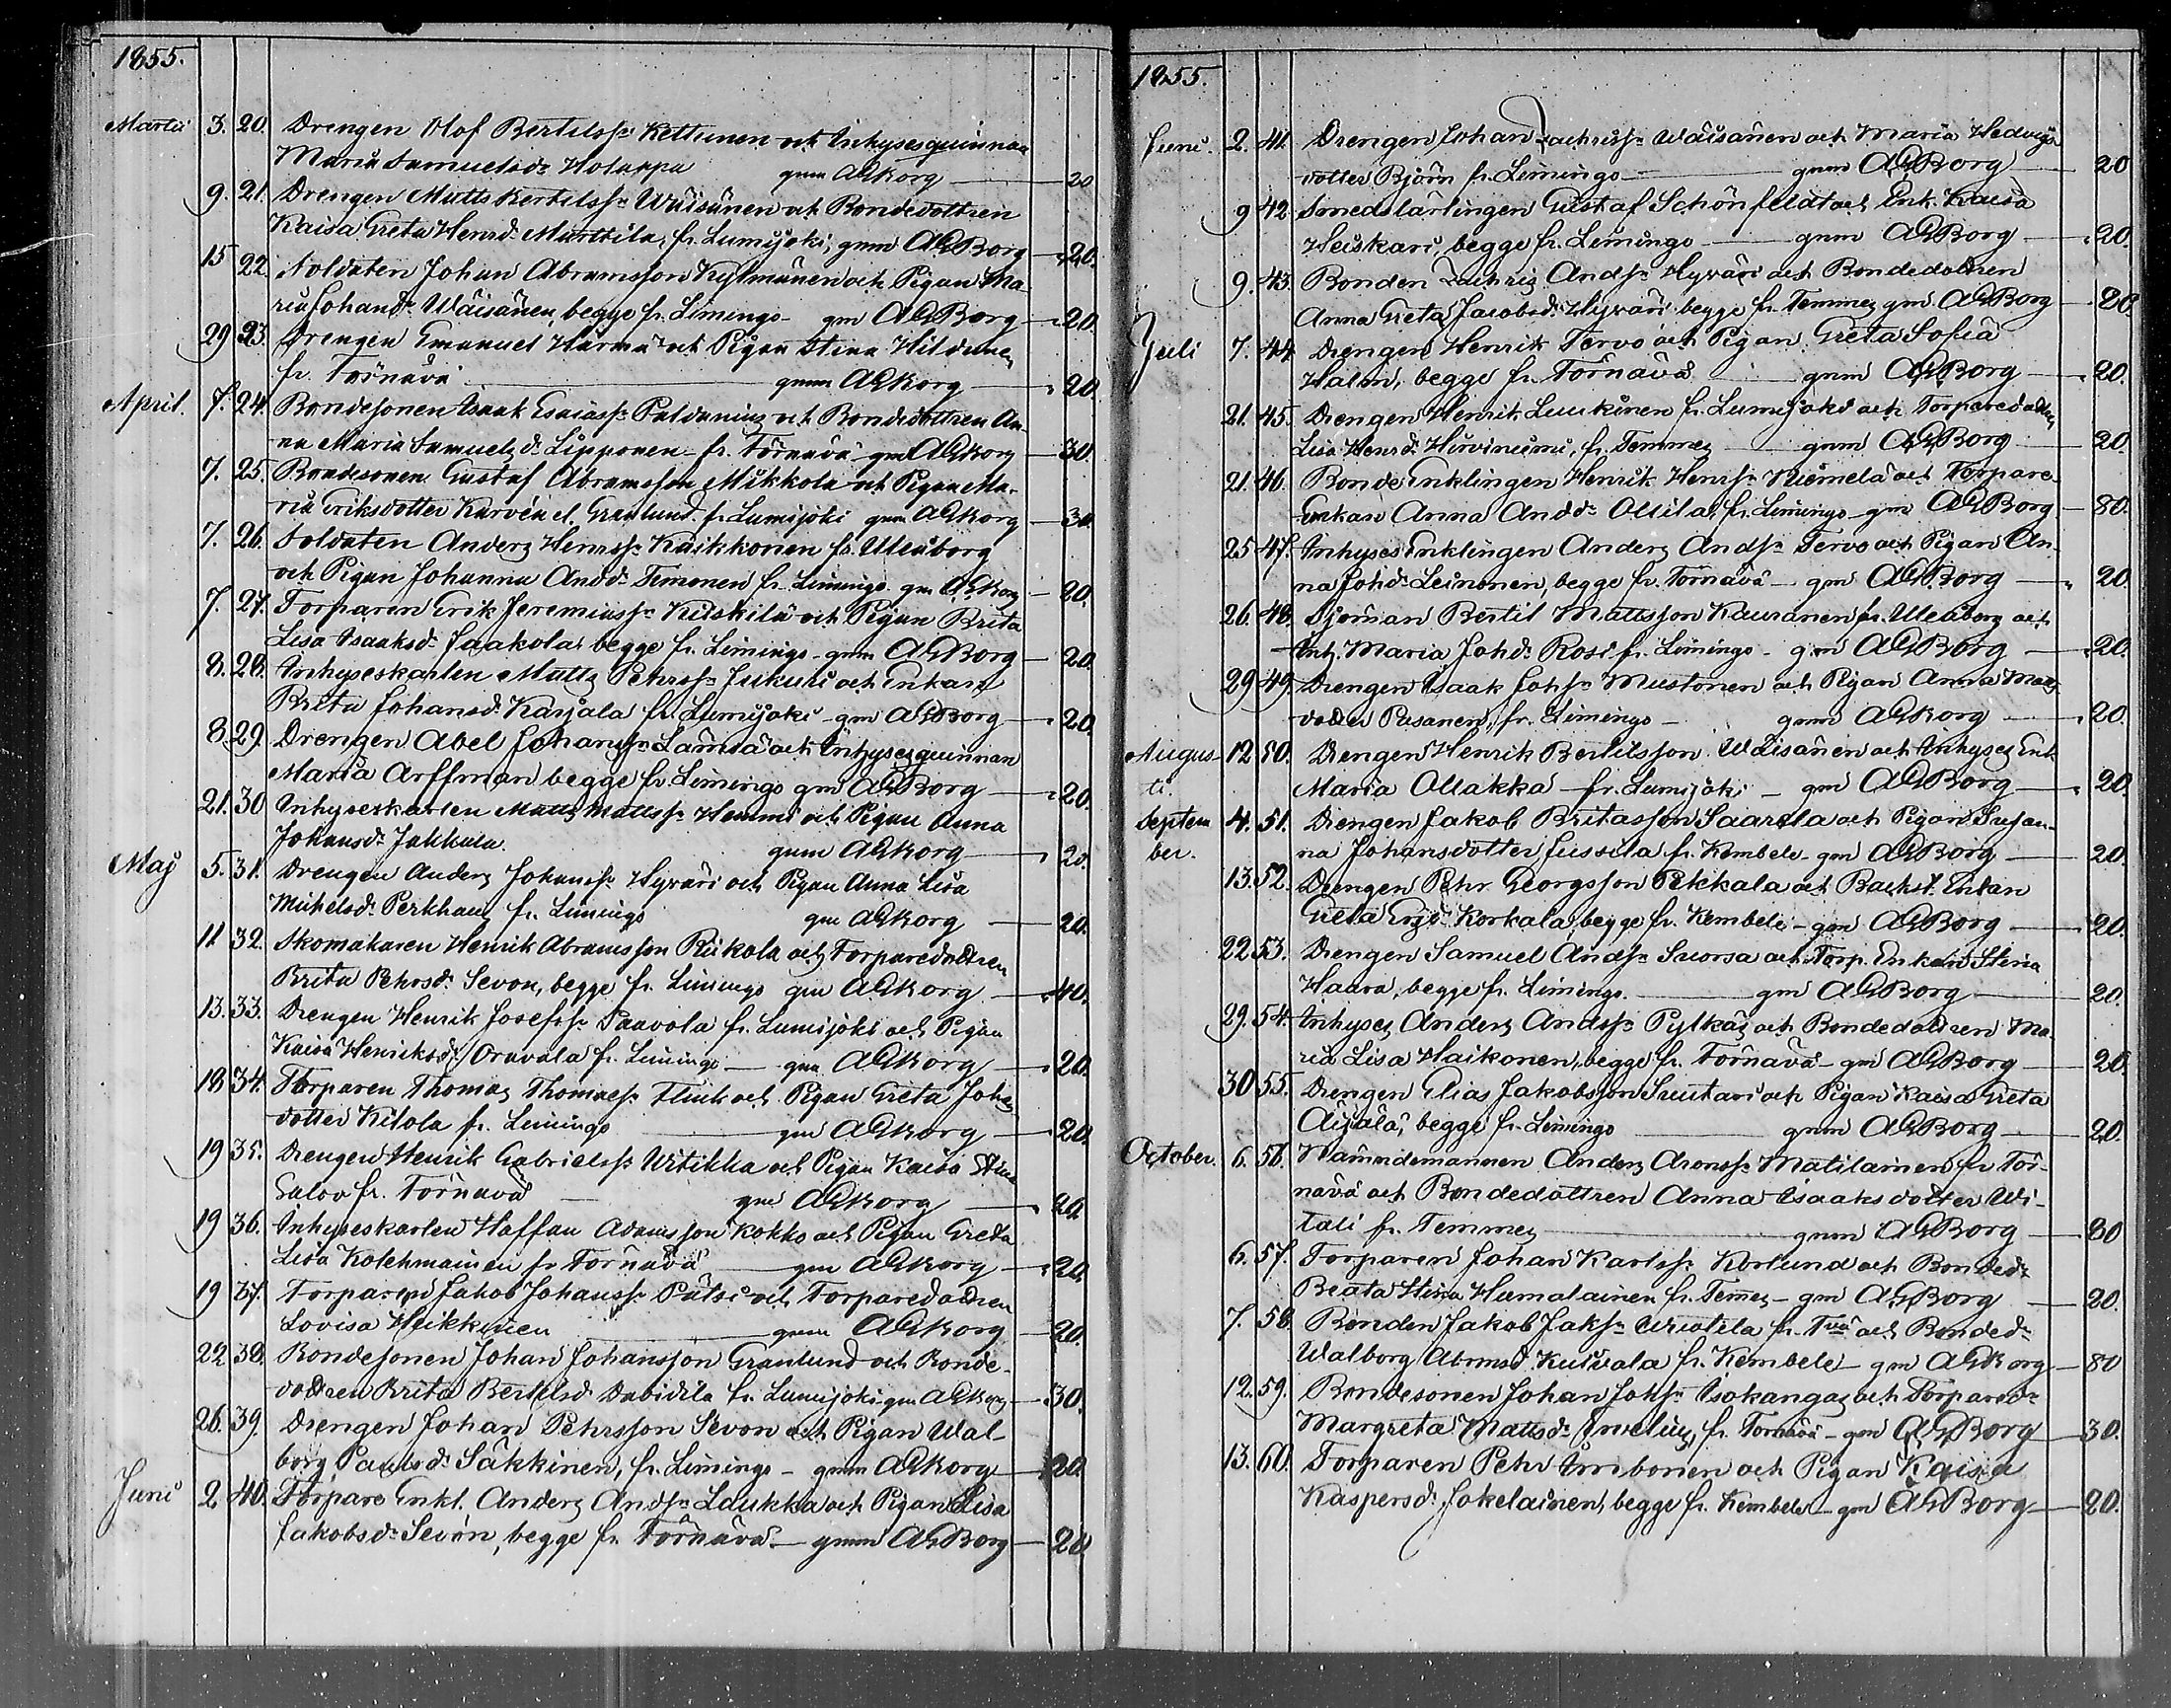 1855.
Martii 3. 20. Drengen Olof Bertilss. Kettunen och Inhysesquinnan
Maria Samuelsd. Holappa gnm AGBorg 20
9. 21. Drengen Matts Bertilss. Wäisänen och Bondedottren
Kaisa Greta Henrd. Marttila, fr. Lumijoki, gnm AGBorg 20.
15 22. Soldaten Johan Abramsson Kylmänen och Pigan Ma-
ria Johansd. Wäisänen, begge fr. Limingo gm AGBorg 20.
29 23. Drengen Emanuel Härmä och Pigan Stina Hildunen
fr. Törnävä gnm AGBorg 20.
April. 7. 24. Bondesonen Isaak Esaiass. Paldanius och Bondedottren An-
na Maria Samuelsd. Lipponen fr. Törnävä gm AGBorg 30.
7. 25. Bondesonen Gustaf Abramsson Mikkola och Pigan Ma-
ria Eriksdotter Karvén el. Granlund fr. Lumijoki gnm AGBorg 30.
7. 26. Soldaten Anders Henrss. Kaikkonen fr. Uleåborg
och Pigan Johanna Andd. Timonen fr. Limingo gm AGBorg 20.
7. 27. Torparen Erik Jeremiass. Kuskila och Pigan Brita
Lisa Isaaksd. Jaakola, begge fr. Limingo gnm AGBorg 20.
8. 28. Inhyseskarlen Matts Pehrss. Jukuri och Enkan
Brita Johansd. Karjala fr. Lumijoki gm AGBorg 20.
8. 29. Drengen Abel Johanss. Lämsä och Inhysesquinnan
Maria Arffman begge fr. Limingo gm AGBorg 20.
21. 30 Inhyseskarlen Matts Mattss. Hemmi och Pigan Anna
Johansd. Jakkula. gnm AGBorg 20.
Maj 5. 31. Drengen Anders Johanss. Hyväri och Pigan Anna Lisa
Michelsd. Perkhans fr. Limingo gm AGBorg 20.
11 32. Skomakaren Henrik Abramsson Riikola och Torparedottren
Brita Pehrsd. Sevon, begge fr. Limingo gm AGBorg 40.
13. 33. Drengen Henrik Josefss. Paavola fr. Lumijoki och Pigan
Kaisa Henriksd. Oravala fr. Limingo gnm AGBorg 20.
18 34. Torparen Thomas Thomass. Flink och Pigan Greta Johs
dotter Kilola fr. Limingo gm AGBorg 20.
19 35. Drengen Henrik Gabrielss. Witikka och Pigan Kaisa Stina
Salov fr. Törnävä gm AGBorg 20.
19 36. Inhyseskarlen Staffan Adamsson Kokko och Pigan Greta
Lisa Kolehmainen fr Törnävä gm AGBorg 20.
19 37. Torparen Jakob Johanss. Pätsi och Torparedottren
Lovisa Heikkinen gnm AGBorg 20.
22 38. Bondesonen Johan Johansson Granlund och Bonde-
dottren Brita Bertelsd. Dabidila fr. Lumijoki gm AGBorg 30.
26. 39. Drengen Johan Pehrsson Sevon och Pigan Wal-
borg Paulsd. Säkkinen, fr. Limingo gnm AGBorg 20.
Juni 2 40. Torpare Enkl. Anders Andss. Laukka och Pigan Lisa
Jakobsd. Sevón, begge fr. Törnävä gnm AGBorg 20
1855.
Juni. 2. 41. Drengen Johan Zachriss. Wäisänen och Maria Hedvigs
dotter Björn fr. Limingo gnm AGBorg 20
9 42 Smedslärlingen Gustaf Schönfeldt och Enk. Kaisa
Heiskari, begge fr. Limingo gnm AGBorg 20.
9. 43. Bonden Zachris Andss. Hyväri och Bondedottren
Anna Greta Jacobsd. Hyväri begge fr. Temmes gm AGBorg 80.
Juli 7. 44. Drengen Henrik Tervo och Pigan Greta Sofia
Halm, begge fr. Törnävä gnm AGBorg 20.
21. 45. Drengen Henrik Luukinen fr. Lumijoki och Torparedottren
Lisa Henrsd. Hirviniemi, fr. Temmes gnm AGBorg 20.
21. 46. Bonde Enklingen Henrik Henrss. Niemelä och Torpare-
Enkan Anna Andd. Ollila, fr. Limingo gm AGBorg 80.
25 47. Inhyses Enklingen Anders Andss. Tervo och Pigan An-
na Johd. Leinonen, begge fr. Törnävä gm AGBorg 20.
26. 48. Sjöman Bertil Mattsson Kauranen fr. Uleåborg och
Inh. Maria Johd. Rosi fr. Limingo gm AGBorg 20.
29 49. Drengen Isaak Johss. Mustonen och Pigan Anna Mats
dotter Pasanen, fr. Limingo gnm AGBorg 20.
Augus- 12 50. Drengen Henrik Bertilsson Wäisänen och Inhyses Enk.
ti. Maria Ollakka fr. Lumijoki gm AGBorg 20.
Septem 4. 51. Drengen Jakob Britasson Saarela och Pigan Susan-
ber. na Johansdotter Jussila fr. Kembele gm AGBorg 20.
13. 52. Drengen Pehr Georgsson Pekkala och Backst. Enkan
Greta Ersd. Korkala, begge fr. Kembele gm AGBorg 20.
22 53. Drengen Samuel Andss. Suorsa och Torp. Enkan Stina
Haara, begge fr. Limingo. gm AGBorg 20.
29. 54. Inhyses Anders Andss. Pylkäs och Bondedottren Ma-
ria Lisa Haikonen, begge fr. Törnävä gm AGBorg 20.
30 55. Drengen Elias Jakobsson Suutari och Pigan Kaisa Greta
Äijälä, begge fr. Limingo gnm AGBorg 20.
October. 6. 56. Nämndemannen Anders Aronss. Matilainen fr Tör-
nävä och Bondedottren Anna Isaaksdotter Wi-
tali fr. Temmes gnm AGBorg 80
6. 57. Torparen Johan Karlss. Korlund och Bonded.
Beata Stina Hämäläinen fr. Temes gm AGBorg 20.
7. 58. Bonden Jakob Jakss. Uriotila fr. Tvä och Bonded.
Walborg Abrmsd. Kuivala fr. Kembele gm AGBorg 80
12. 59. Bondesonen Johan Johss. Isokangas och Torpared.
Margreta Mattsd. Invelius, fr. Törnävä gm AGBorg 30.
13. 60. Torparen Pehr Imbonen och Pigan Kaisa
Kaspersd. Jokelainen, begge fr. Kembele gm AGBorg 20.